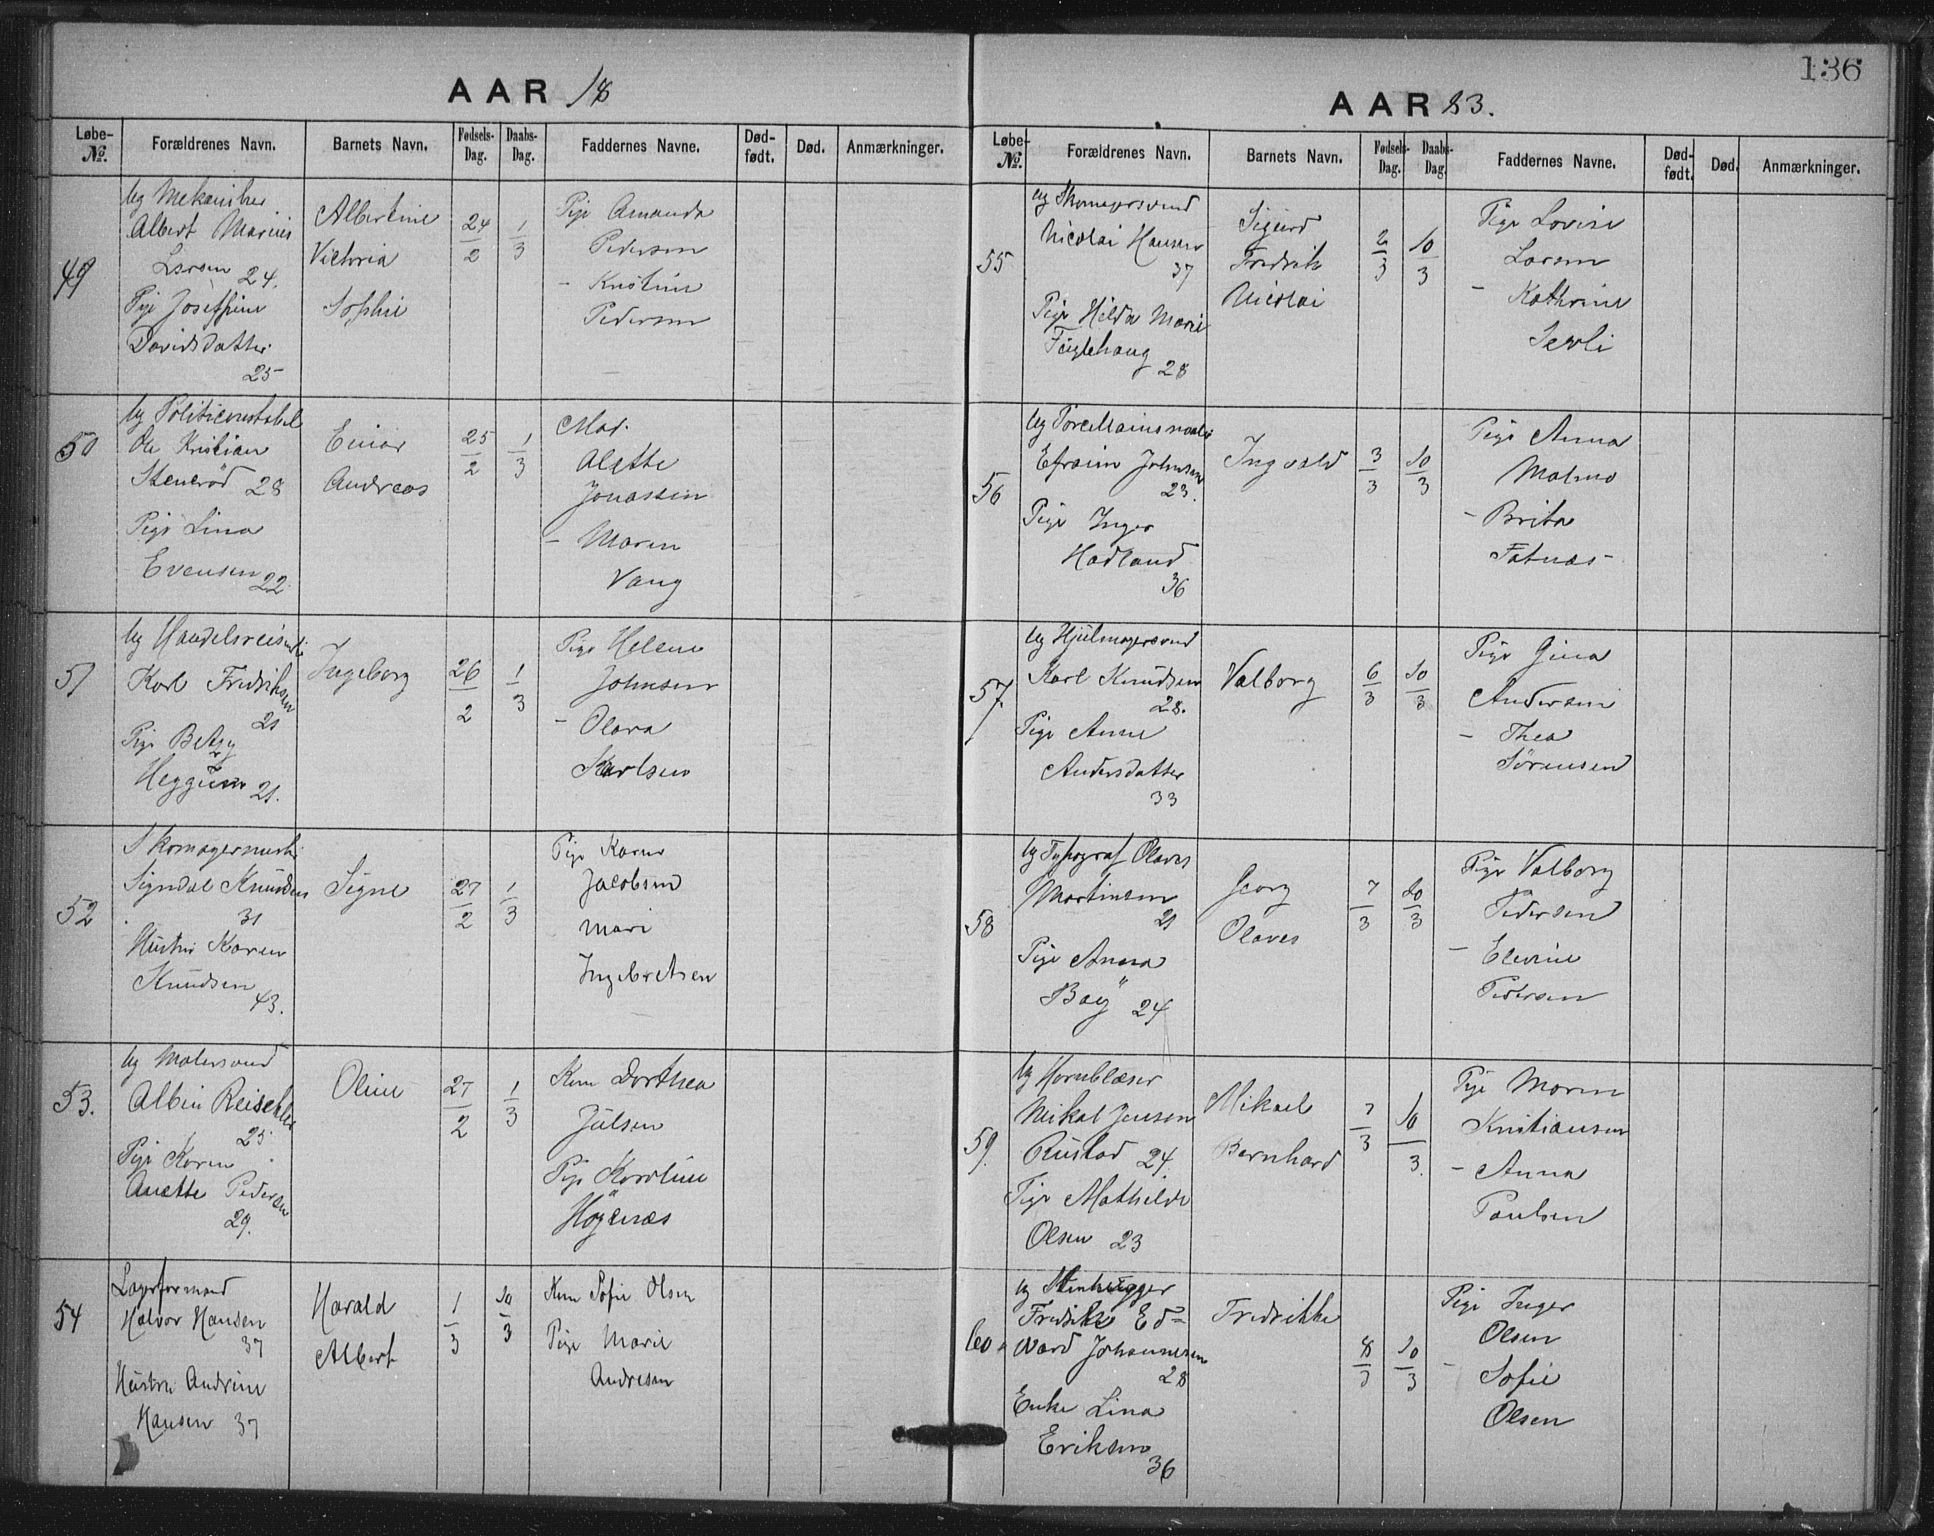 AAR 18
Løbe-№. Forældrenes Navn. Barnets Navn. Fødsels-Dag. Daabs-Dag. Faddernes Navne. Død-født. Død. Anmærkninger.
49
Albert Marius
Larsen 24.
Pige Josephine
Davidsdatter
25
Albertine
Victoria
Sophie
24/2
1/3
Pige Amanda
Pedersen
- Kristine
Pedersen
50
Ug Politiconstabel
Ole Kristian
Stenerød 28
Pige Lina
Evensen 22
Einar
Andreas
25/2
1/3
Mad.
Alette
Jonassen
- Maren
Vang
51
Ug Handelsreisende
Karl Fredriksen
21
Pige Betzy
Heggum 21.
Ingeborg
26/2
1/3
Pige Helene
Johnsen
- Olava
Karlsen
52
Skomagermester
Signdal Knudsen
31
Hustru Karen
Knudsen
43.
Signe
27/2
1/3
Pige Karen
Jacobsen
Mari
Ingebretsen
53.
Ug Malersvend
Albin
25.
Pige Karen
Anette Pedersen
29.
Oline
27/2
1/3
Kone Dorthea
Julsen
Pige Karoline
Høyenæs
54
Lagerformand
Halvor Hansen
37
Hustru Andrine
Hansen 37
Harald
Albert
1/3
10/3
Kone Sofie Olsen
Pige Marie
Andresen
136
AAR 83.
Løbe-№. Forældrenes Navn. Barnets Navn. Fødsels-Dag. Daabs-Dag. Faddernes Navne. Død-født. Død. Anmærkninger.
55
Ug Skomagersvend
Nicolai Hansen
37
Pige Hilda Marie
Fuglehaug
28
Sigurd
Fredrik
Nicolai
2/3
10/3
Pige Lovise
Larsen
- Kathrine
56
Ug Porcellainsmaler
Efraim Johnsen
23.
Pige Inger
Hadland
36
Ingvald
3/3
10/3
Pige Anna
Malmo
- Brita
Fatnæs
57.
Ug Hjulmagersvend
Karl Knudsen
28.
Pige Anne
Andersdatter
33
Valborg
6/3
10/3
Pige Gina
Andersen
- Thea
Sørensen
58
Ug Typograf Olaves
Martinsen
21
Pige Anna
Bay 24
Georg
Olaves
7/3
10/3
Pige Valborg
Pedersen
- Elevine
Pedersen
59.
Ug Hornblæser
Mikal Jensen
Rustad 24.
Pige Mathilde
Olsen 23
Mikael
Bernhard
7/3
10/3.
Pige Maren
Kristiansen
- Anna
Paulsen
60.
Ug Stenhugger
Fredrik Ed-
vard Johannesen
28
Enke Lina
Eriksen
36
Fredrikke
8/3
10/3
Pige Inger
Olsen
- Sofie
Olsen